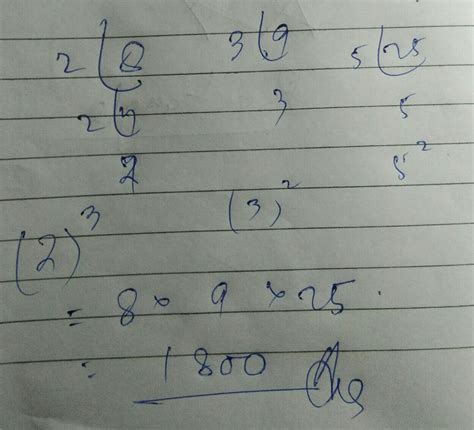 2 8 3 9 5 25
2 4 3 5
2 5²
(2)³ (3)²
= 8 × 9 × 25
= 1800 Ans